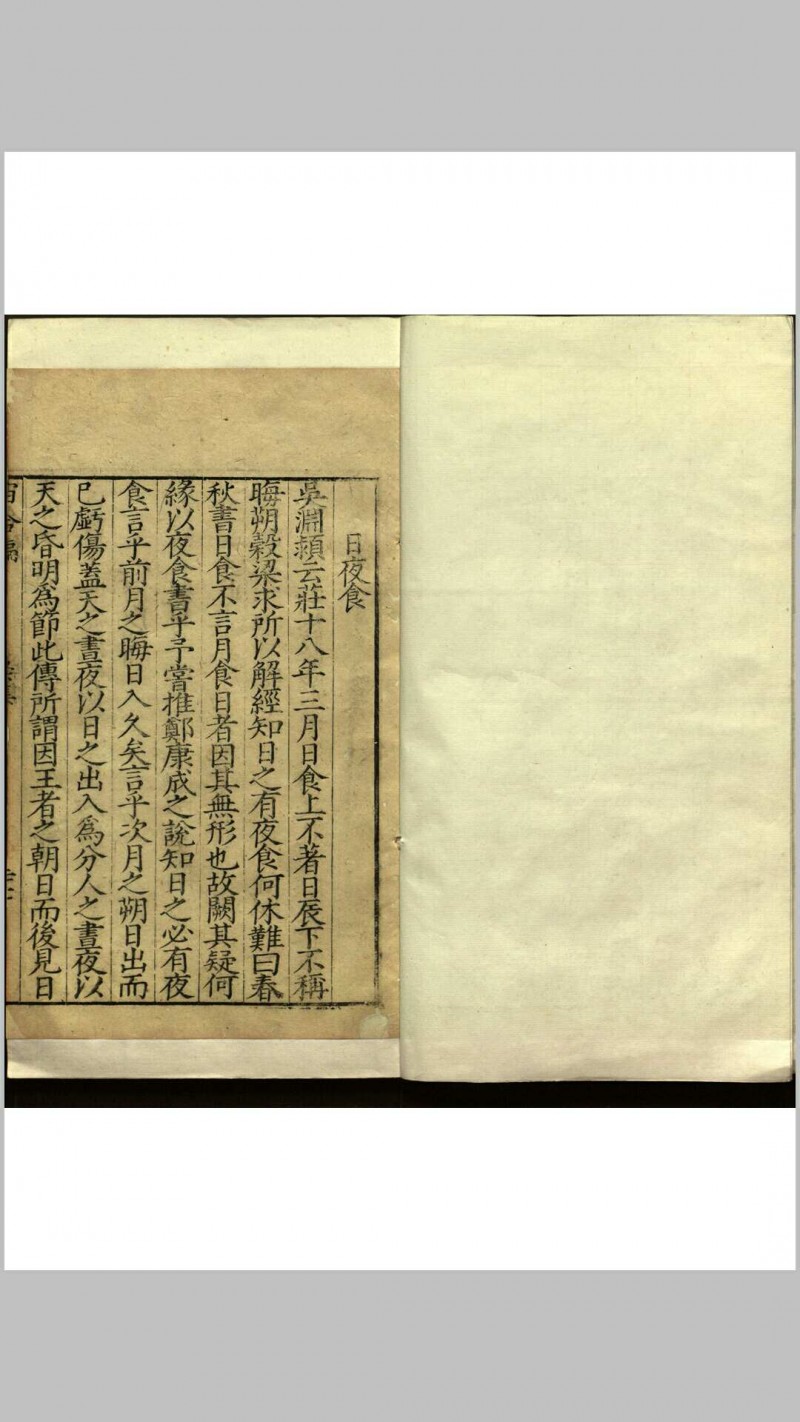 日夜食
吳淵頴云莊十八年三月日食上不著日辰下不稱
晦朔榖梁求所以解經知日之有夜食何休難曰春
秋書日食不言月食日者因其無形也故闕其疑何
緣以夜食書乎予嘗推鄭康成之說知日之必有夜
食言乎前月之晦日入久矣言乎次月之朔日出而
已虧傷蓋天之晝夜以日之出入爲分人之晝夜以
天之昏明爲節此傳所謂因王者之朝日而後見日